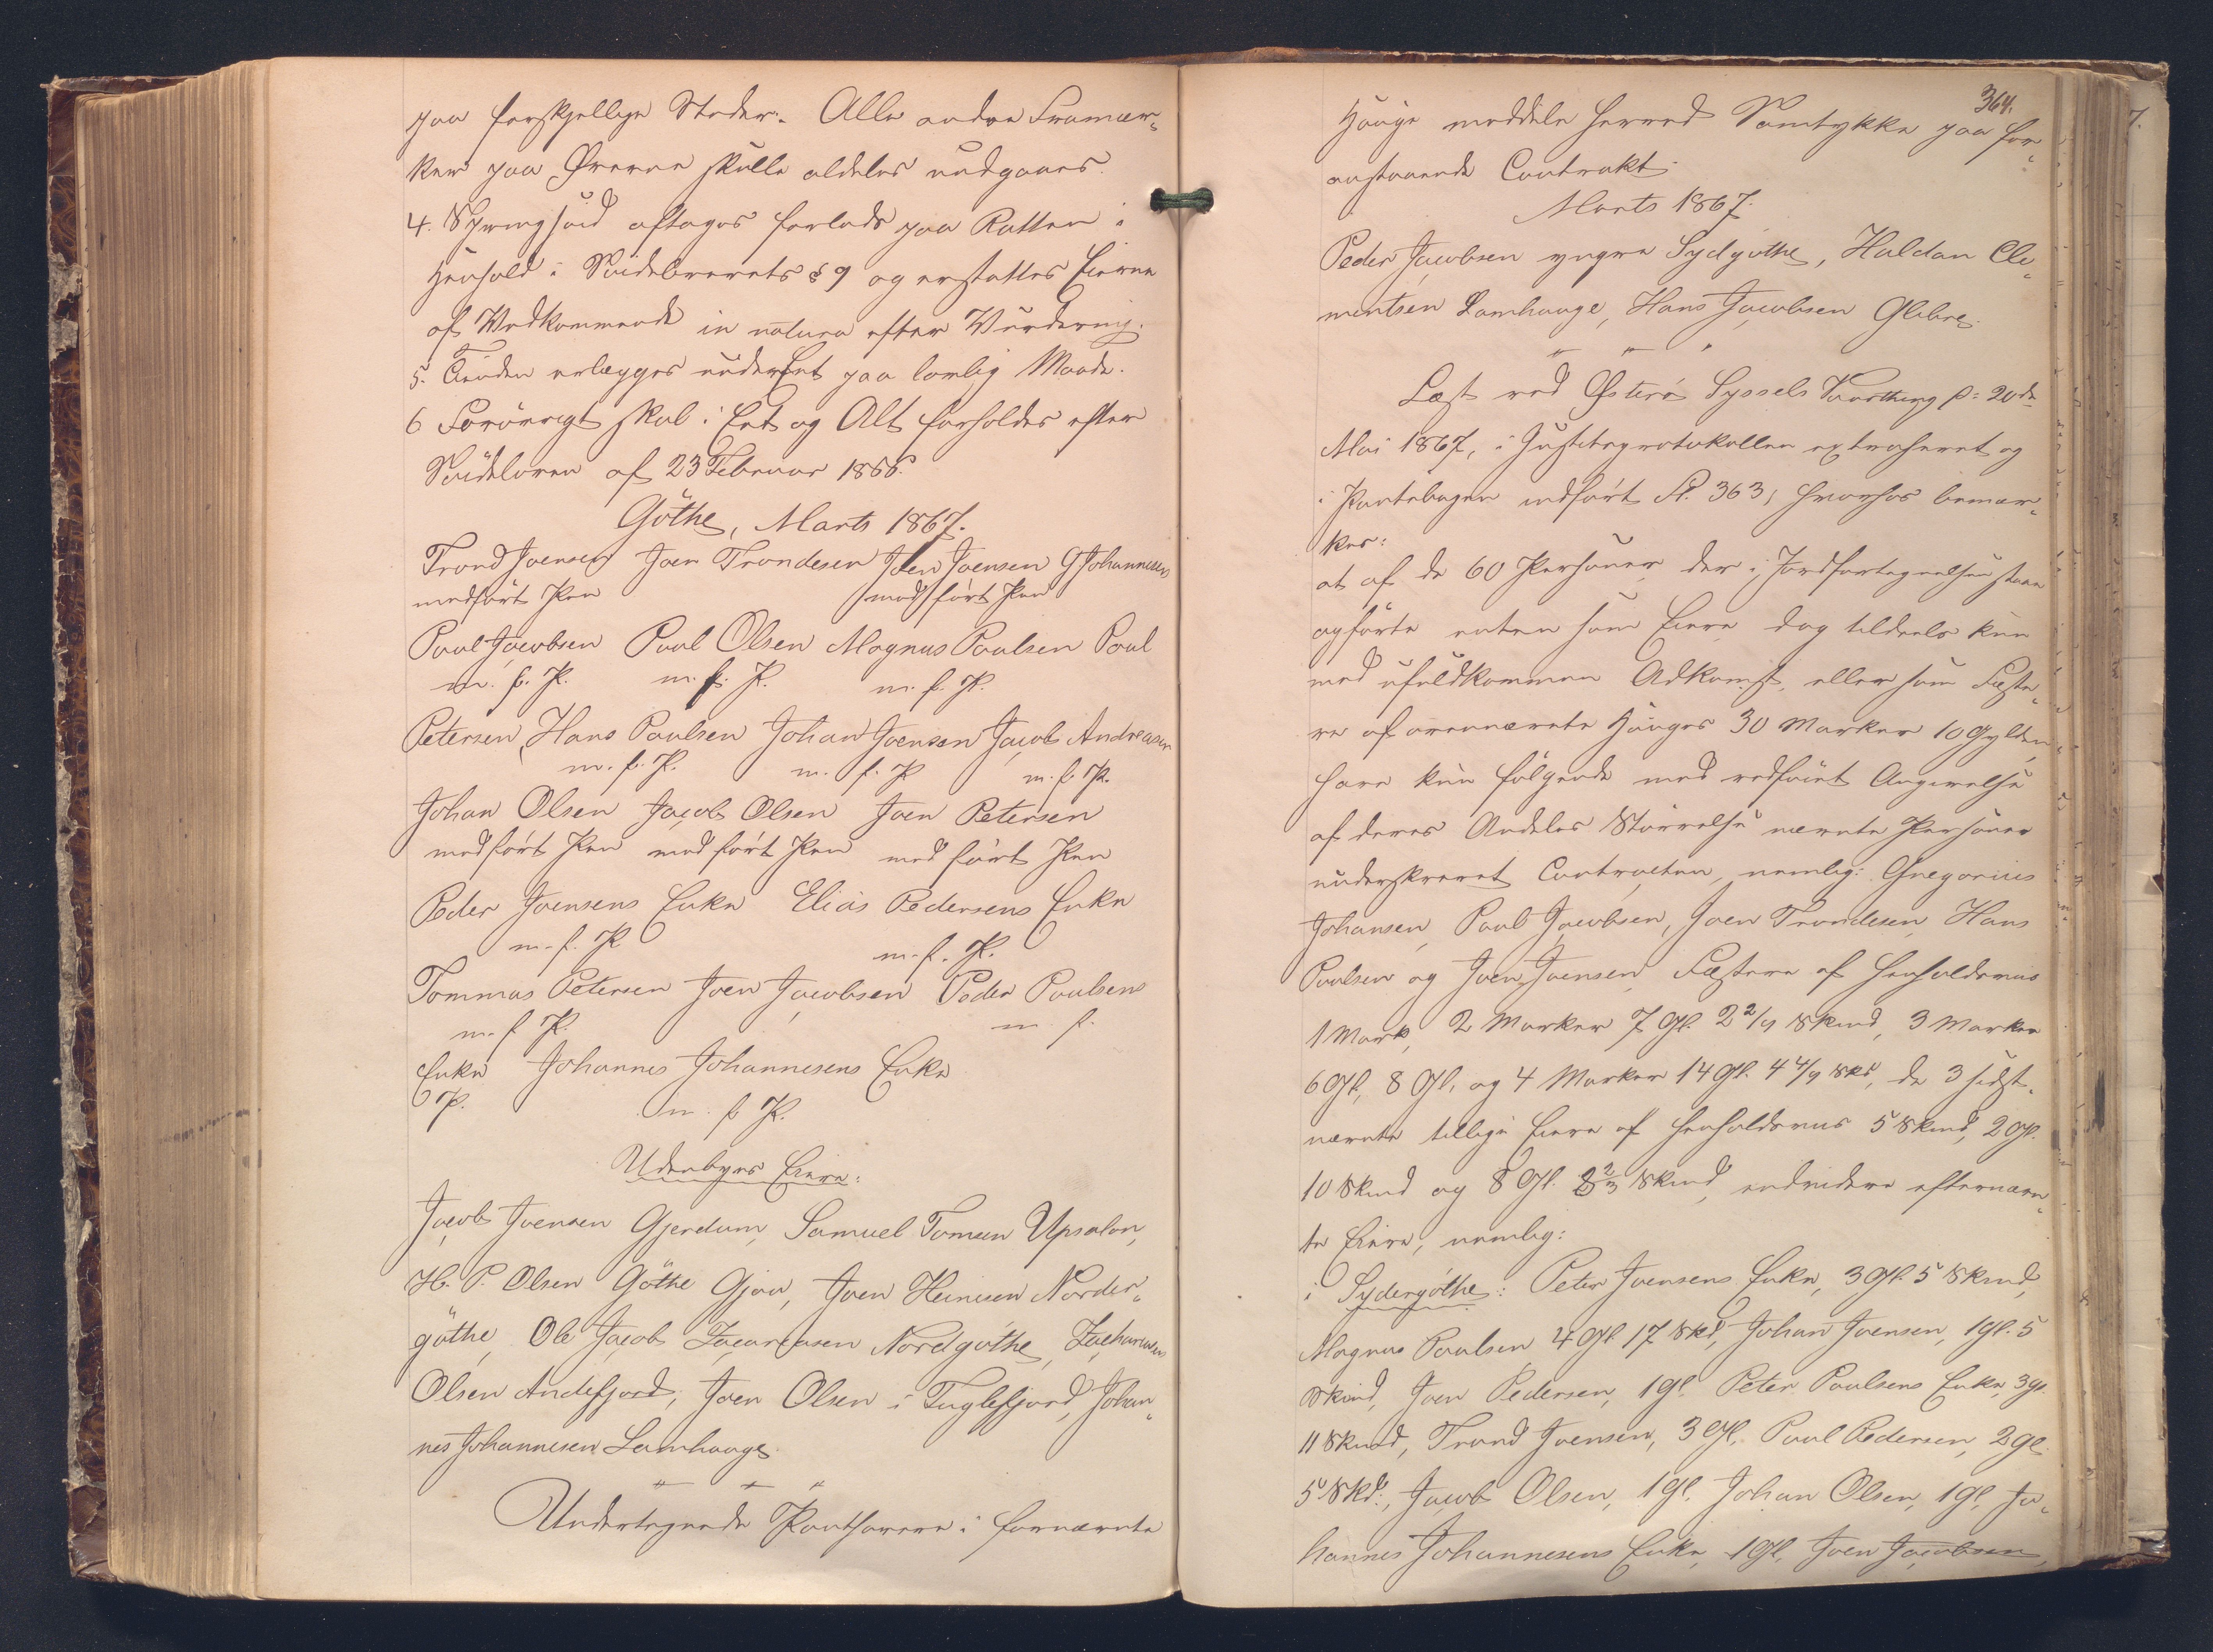 paa forskjellige Steder. Alle andre Framær-
ker paa Ørerne skulle aldeles undgaaes.
4. Springfaid aftages forlods paa Rætten i
Henhold i Skindebrevets § 9 og erstattes Eierne
af Vedkommende in natura efter Vurdering.
5. Tienden erlægges uuderskat paa lovlig Maade.
6 Forøvrigt skal i Eet og Alt forholdes efter
Skindeloven af 23 Februar 1866.
Göthe, Marts 1867.
Trond Joensen Joen Trondesen Joen Joensen G Johannesen
medført Pen medført Pen
Poul Jacobsen Poul Olsen Magnus Poulsen Poul
m. f. P. m. f. P. m. f. P.
Petersen, Hans Poulsen Johan Joensen Jacob Andreasen
m. f. P. m. f. P m. f. P.
Johan Olsen Jacob Olsen Joen Petersen
med ført Pen med ført Pen med ført Pen
Peder Joensens Enke Elias Pedersens Enke
m. f. P m. f. P.
Tommas Petersen Joen Jacobsen Peder Poulsens
m. f. P. m. f.
Enke Johannes Johannesens Enke
P. m. f. P.
Udenbyes Eiere:
Jacob Joensen Gjerdum, Samuel Tomsen Upsalon,
H. P. Olsen Göthe Gjov, Joen Heinesen Norder-
göthe, Ole Jacob Zacariasen Nordgøthe, Zacharias
Olsen Andefjord, Joen Olsen i Fuglefjord, Johan-
nes Johannesen Lamhauge
" " "
Undertegnede Panthavere i fornævnte
364.
Hauge meddele herved Samtykke paa for-
anstaaende Contrakt.
Marts 1867.
Peder Jacobsen yngre Sydgøthe, Haldan Cle-
mentsen Lamhauge, Hans Jacobsen Glibre.
" " "
Læst ved Østerø Syssels Vaarthing d. 20de
Mai 1867, i Justitsprotokollen extraheret og
i Pantebogen indført Fl. 363, hvorhos bemær-
kes:
at af de 60 Personer der i Jordfortegnelsen staae
opførte enten som Eiere dog tildeels kun
med ufuldkommen Adkomst, eller som Fæste-
re af ovennævnte Hauges 30 Marker 10 Gylden,
have kun følgende med vedføiet Angivelse
af deres Andeles Størrelse nævnte Personer
underskrevet Contracten, nemlig: Gregorius
Johansen, Poul Jacobsen, Joen Trondesen, Hans
Poulsen og Joen Joensen Fæstere af henholdsviis
1 Mark, 2 Marker 7 Gl. 2 2/9 Skind, 3 Marker
6 Gl, 8 Gl. og 4 Marker 14 Gl. 4 4/9 Skd, de 3 sidst-
nævnte tillige Eiere af henholdsviis 5 Skind, 2 Gl.
10 Skind og 8 Gl. 2 2/3 Skind, endvidere efternævn-
te Eiere, nemlig:
i Sydergøthe: Peter Joensens Enke, 3 Gl. 5 Skind,
Magnus Poulsen 4 Gl 17 Skd, Johan Joensen, 1 Gl. 5
Skind, Joen Pedersen, 1 Gl. Peter Poulsens Enke, 3 Gl.
11 Skind, Trond Joensen, 3 Gl. Poul Pedersen, 2 Gl
5 Skd., Jacob Olsen, 1 Gl. Johan Olsen, 1 Gl, Jo-
hannes Johannesens Enke, 1 Gl, Joen Jacobsen,